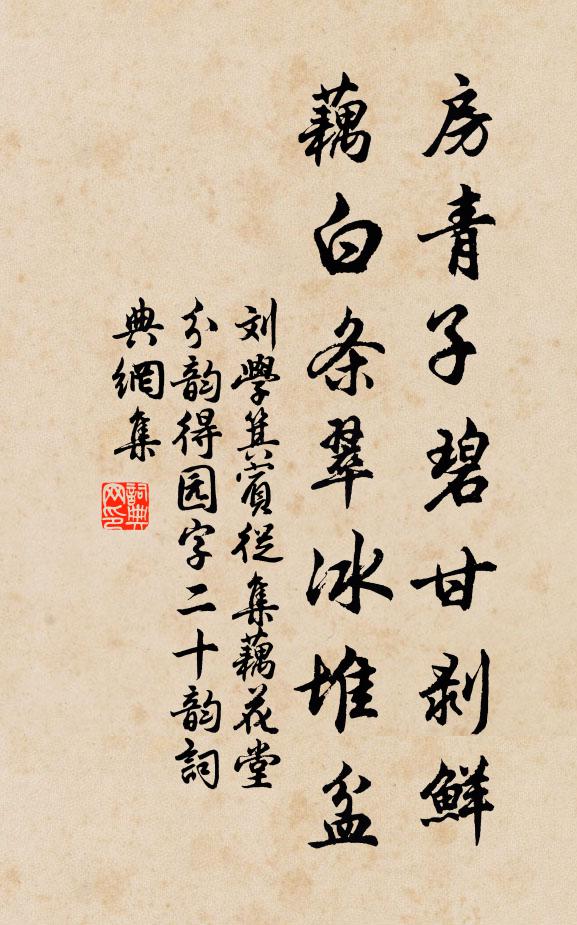 房青子碧甘剥鲜
藕白条翠冰堆盆
刘學箕賓從集藕花堂
分韵得园字二十韵詞
典網集
詞典网印